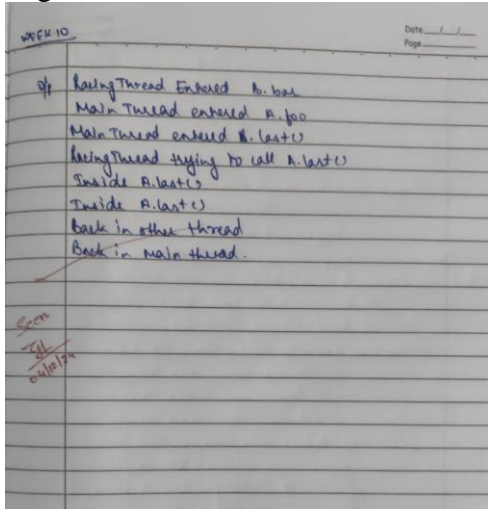 WEEK 10
Date __/__/__
Page
o/p Racing Thread Entered B.bar
Main Thread entered A.foo
Main Thread entered B.last()
Racing Thread trying to call A.last()
Inside A.last()
Inside A.last()
Back in other thread
Back in main thread.
Seen
04/12/24